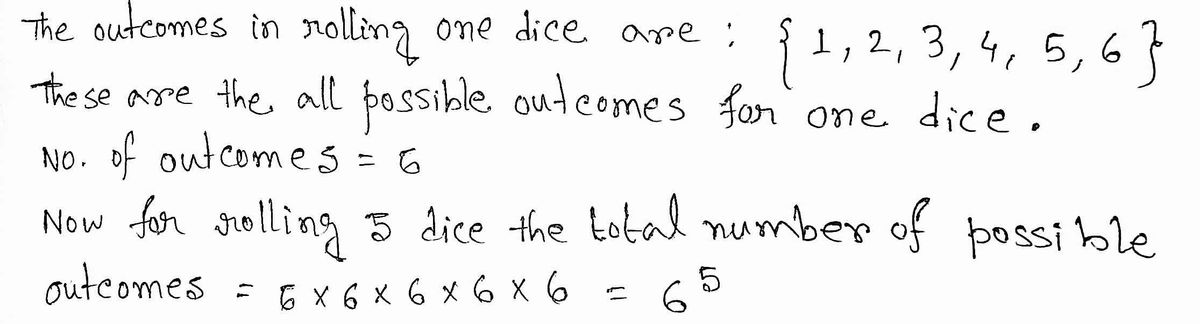 The outcomes in rolling one dice are : {1, 2, 3, 4, 5, 6}
These are the all possible outcomes for one dice.
No. of outcomes = 6
Now for rolling 5 dice the total number of possible
outcomes = 6 × 6 × 6 × 6 × 6 = 6⁵